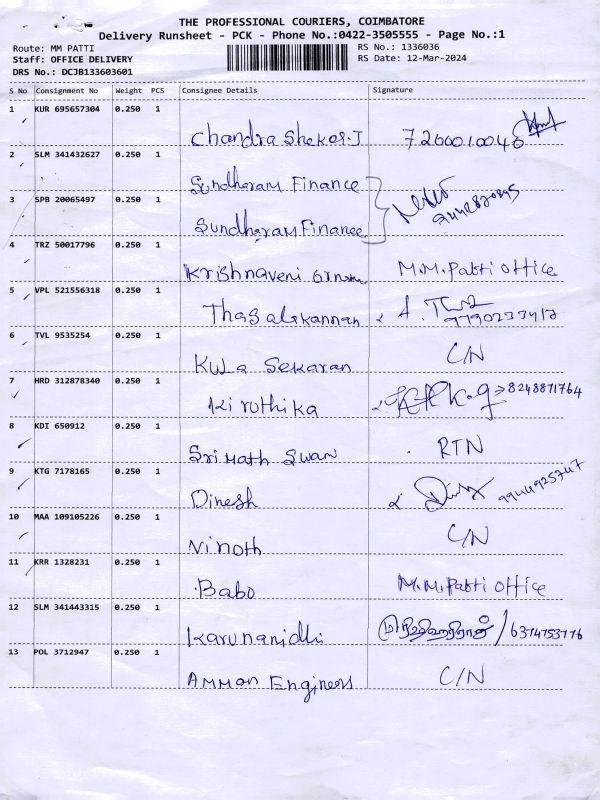 THE PROFESSIONAL COURIERS, COIMBATORE
Delivery Runsheet - PCK - Phone No.:0422-3505555 - Page No.:1
Route: MM PATTI
Staff: OFFICE DELIVERY
DRS No.: DCJB133603601
RS No.: 1336036
RS Date: 12-Mar-2024
S No Consignment No Weight PCS Consignee Details Signature
1 KUR 695657304 0.250 1
Chandra Shekar.J 7260010046
2 SLM 341432627 0.250 1
Sundharam Finance
3 SPB 20065497 0.250 1
Sundharam Finance
4 TRZ 50017796 0.250 1
Krishnaveni M.M.Patti Office
5 VPL 521556318 0.250 1
Thasalskannan
6 TVL 9535254 0.250 1
Kula Sekaran C/N
7 HRD 312878340 0.250 1
Kiruthika 8248871764
8 KDI 650912 0.250 1
Sri Math Swan RTN
9 KTG 7178165 0.250 1
Dinesh 9944925747
10 MAA 109105226 0.250 1
Vinoth C/N
11 KRR 1328231 0.250 1
Babo M.M.Patti Office
12 SLM 341443315 0.250 1
Karunanidhi 6374753776
13 POL 3712947 0.250 1
Amman Engineers C/N